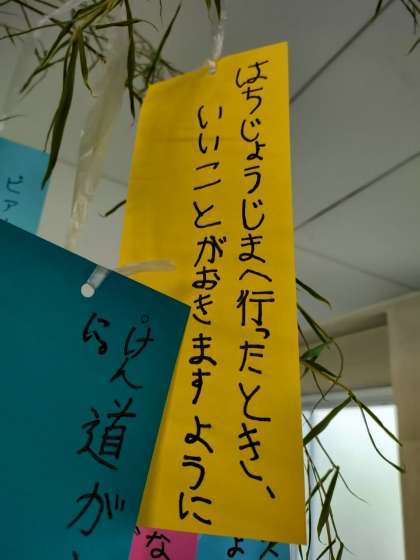 はちじょうじまへ行ったとき、
いいことがおきますように
けん道が
ピア
な